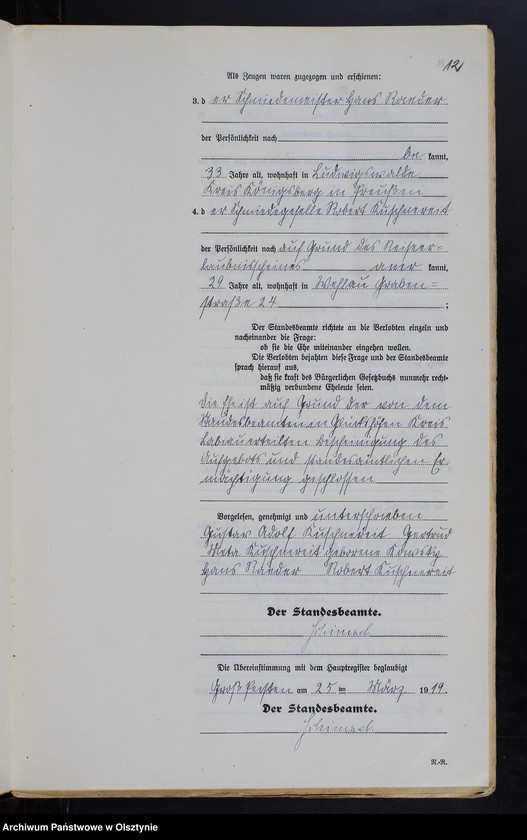 12
Als Zeugen waren zugezogen und erschienen:
3. d er Schmiedemeister Hans Raeder
der Persönlichkeit nach
be kannt,
33 Jahre alt, wohnhaft in Ludwigswalde
Kreis Königsberg in Preußen
4. d er Schmiedegeselle Robert Kuschnereit
der Persönlichkeit nach auf Grund des Reiseer-
laubnisscheines aner kannt,
29 Jahre alt, wohnhaft in Wehlau Graben=
straße 24 ;
Der Standesbeamte richtete an die Verlobten einzeln und
nacheinander die Frage:
ob sie die Ehe miteinander eingehen wollen.
Die Verlobten bejahten diese Frage und der Standesbeamte
sprach hierauf aus,
daß sie kraft des Bürgerlichen Gesetzbuchs nunmehr recht-
mäßig verbundene Eheleute seien.
Die Ehe ist auf Grund der von dem
Standesbeamten in Glückshöfen Kreis
Labiau erteilten Bescheinigung des
Aufgebots und standesamtlichen Er
mächtigung geschlossen
Vorgelesen, genehmigt und unterschrieben
Gustav Adolf Kuschnereit Gertrud
Meta Kuschnereit geborene
Hans Raeder Robert Kuschnereit
Der Standesbeamte.
Die Übereinstimmung mit dem Hauptregister beglaubigt
Groß am 25 ten März 1919.
Der Standesbeamte.
R.-R.
Archiwum Państwowe w Olsztynie